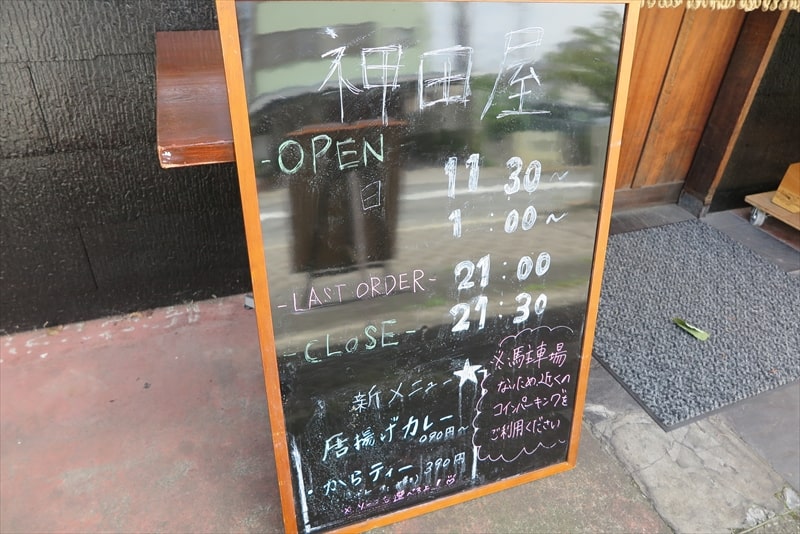 神田屋
-OPEN 11:30~
日 1:00~
-LAST ORDER- 21:00
-CLOSE- 21:30
新メニュー
唐揚げカレー
090円~
・からティー 390円
※駐車場
ないため近くの
コインパーキングを
ご利用ください